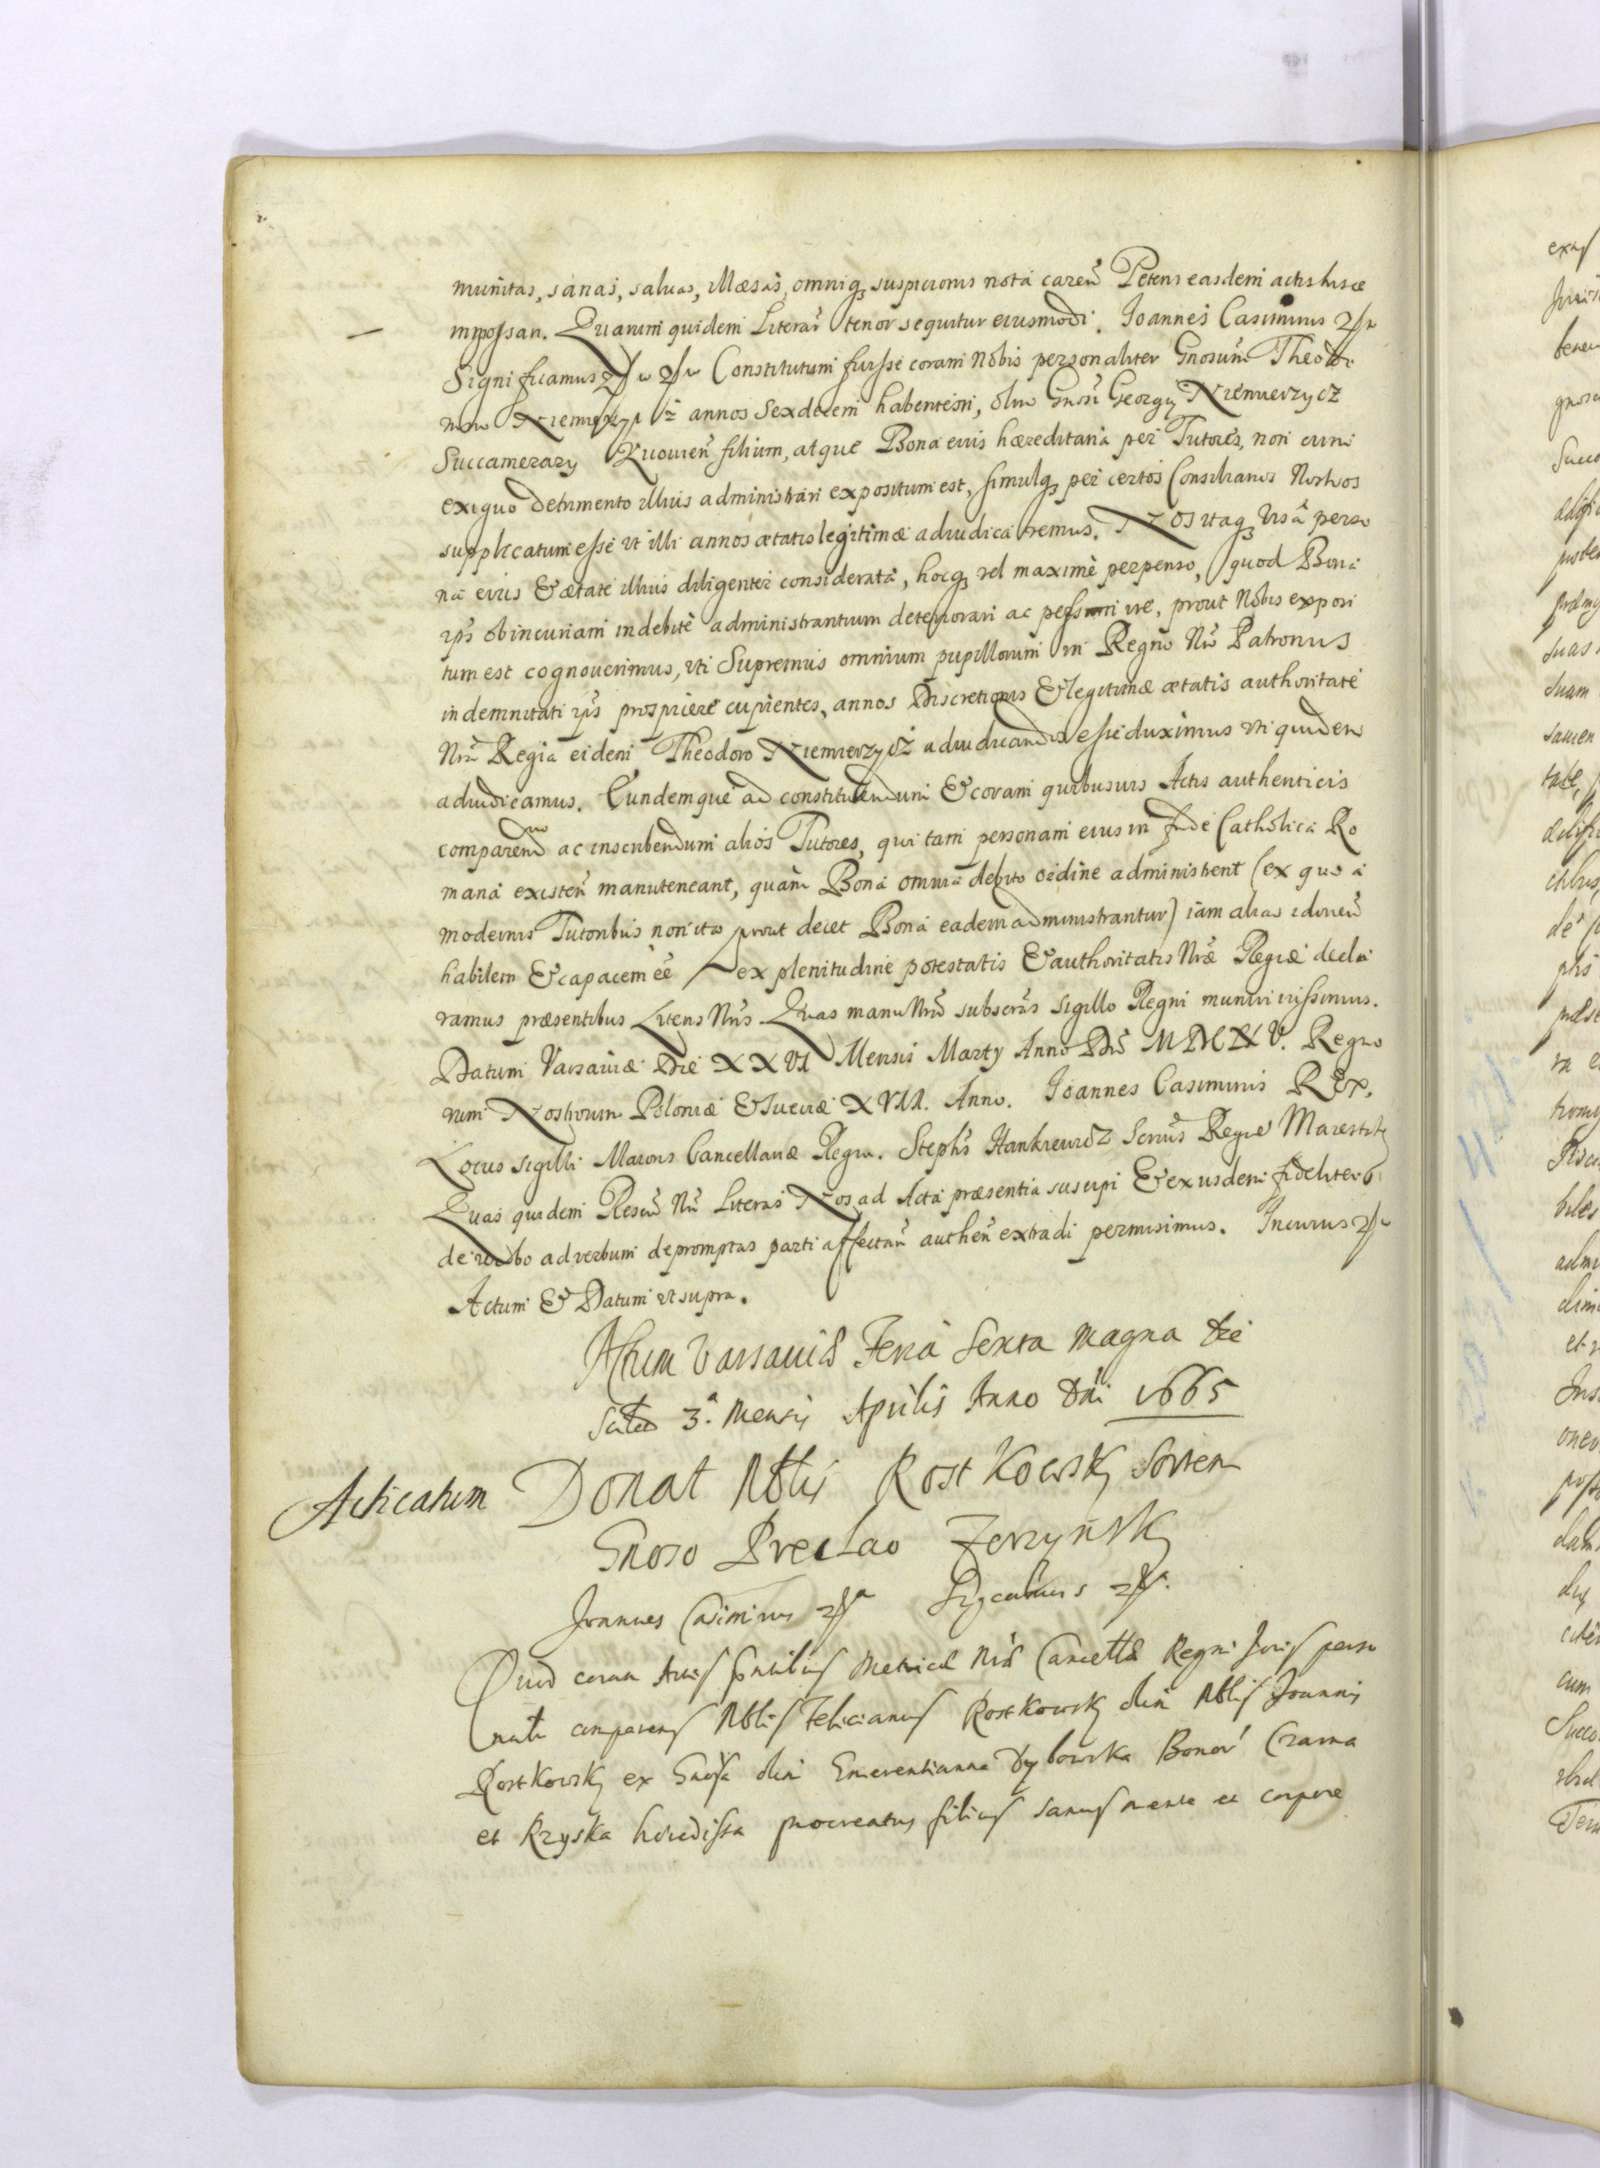 munitas, sanas, saluas, illæsas, omniq; suspicionis nota caren̄ Petens easdem actis hisce
ingrossari. Quarum quidem Literar̄ tenor sequitur eiusmodi. Joannes Casimirus
Significamus Constitutum fuisse coram Nobis personaliter Gnosum̄ Theodo
rum Niemierzycz annos Sexdecem habentem, olim Gnosi Georgy Niemierzycz
Succamerary Kiouien̄ filium, atque Bona eius hæreditaria per Tutores, non cum
exiguo detrimento illius administrari expositum est, simulq; per certos Consiliarios Nostros
supplicatum esse vt illi annos ætatis legitimæ adiudicaremus. Nos itaq; visâ perso
na eius & ætate illius diligenter consideratâ, hocq; vel maximè perpenso, quod Bona
ips̄ ob incuriam indebitè administrantium deteriorari ac pessum ire, prout Nobis exposi
tum est cognouerimus, vti Supremus omnium pupillorum in Regno Nr̄o Patronus
indemnitati ips̄ prospicere cupientes, annos Discretionis & legitimæ ætatis authoritate
Nr̄a Regia eidem Theodoro Niemierzycz adiudicandos esse duximus vti quidem
adiudicamus. Eundemque ad constituendum & coram quibusuis Actis authenticis
comparendo ac inscribendum alios Tutores, qui tam personam eius in fide Catholica Ro
mana existen̄ manuteneant, quàm Bona omnia debito ordine administrent (ex quo a
modernis Tutoribus non ita prout decet Bona eadem administrantur) iam alias idoneū
habilem & capacem eē ex plenitudine potestatis & authoritatis Nr̄æ Regiæ decla
ramus præsentibus Literis Nr̄is. Quas manu Nr̄a subscr̄as sigillo Regni muniri iussimus.
Datum Varsauiæ Die XXVI Mensis Marty Anno Dn̄i MDCLXV. Regno
rum Nostrorum Poloniæ & Sueciæ XVII. Anno. Joannes Casimirus Rex.
Locus sigilli Maioris Cancellariæ Regni. Stephs̄ Hankiewicz Regiæ Maiestatis
Quas quidem Literas Nos ad Acta præsentia suscipi & ex iisdem fideliter
de verbo ad verbum depromptas parti affectan̄ authen̄ extradi permisimus. In cuius
Actum & Datum vt supra.
Actum Varsauiæ Feria Sexta magna die
3.ª Mensis Aprilis Anno Dn̄i 1665
Acticatum Donat Nblis Rostkowsky Sortem
Gnoso Preclao Zerzynsky
Joannes Casimirus
Quod coram Actis Metrices Nr̄æ Cancellæ Regni perso
naliter comparens Nblis Felicianus Rostkowsky olim Nblis Joannis
Rostkowsky ex Gnosa olim Emerentianna Dybowska Bonor̄ Czarna
et Kzyska heredissa procreatus filius sanus mente et corpore